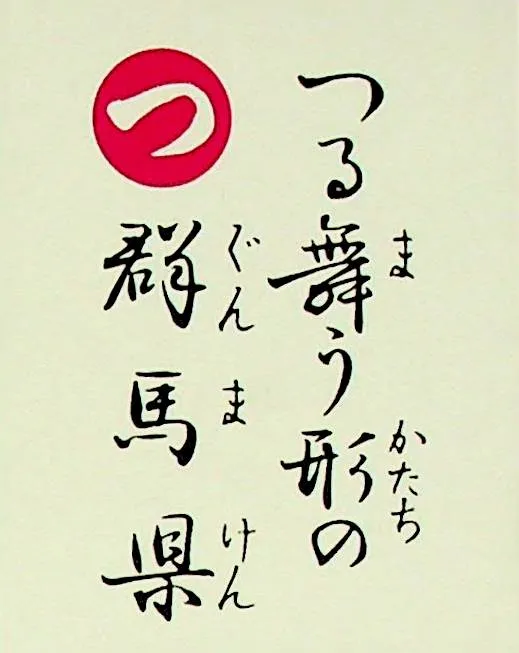 つる舞う形の
ま
かたち
つ
群馬県
ぐんまけん